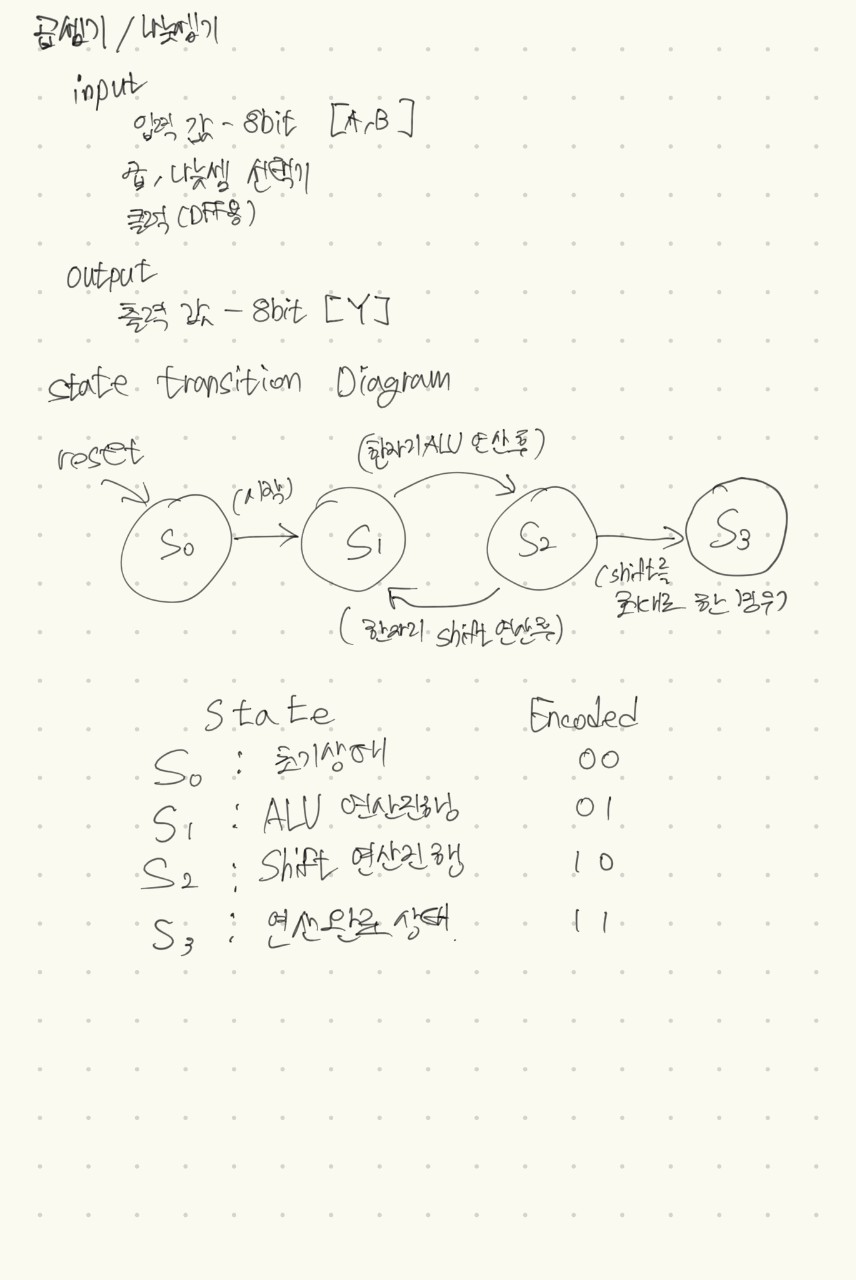 곱셈기 / 나눗셈기
input
입력 값 - 8bit [A, B]
곱, 나눗셈 선택기
클럭 (DFF용)
output
출력 값 - 8bit [Y]
state transition Diagram
reset
(시작)
(한자리 ALU 연산 후)
S0
S1
S2
S3
(한자리 shift 연산후)
(shift를
최대로 한 경우)
State Encoded
S0 : 초기상태 00
S1 : ALU 연산진행 01
S2 : Shift 연산진행 10
S3 : 연산완료 상태. 11